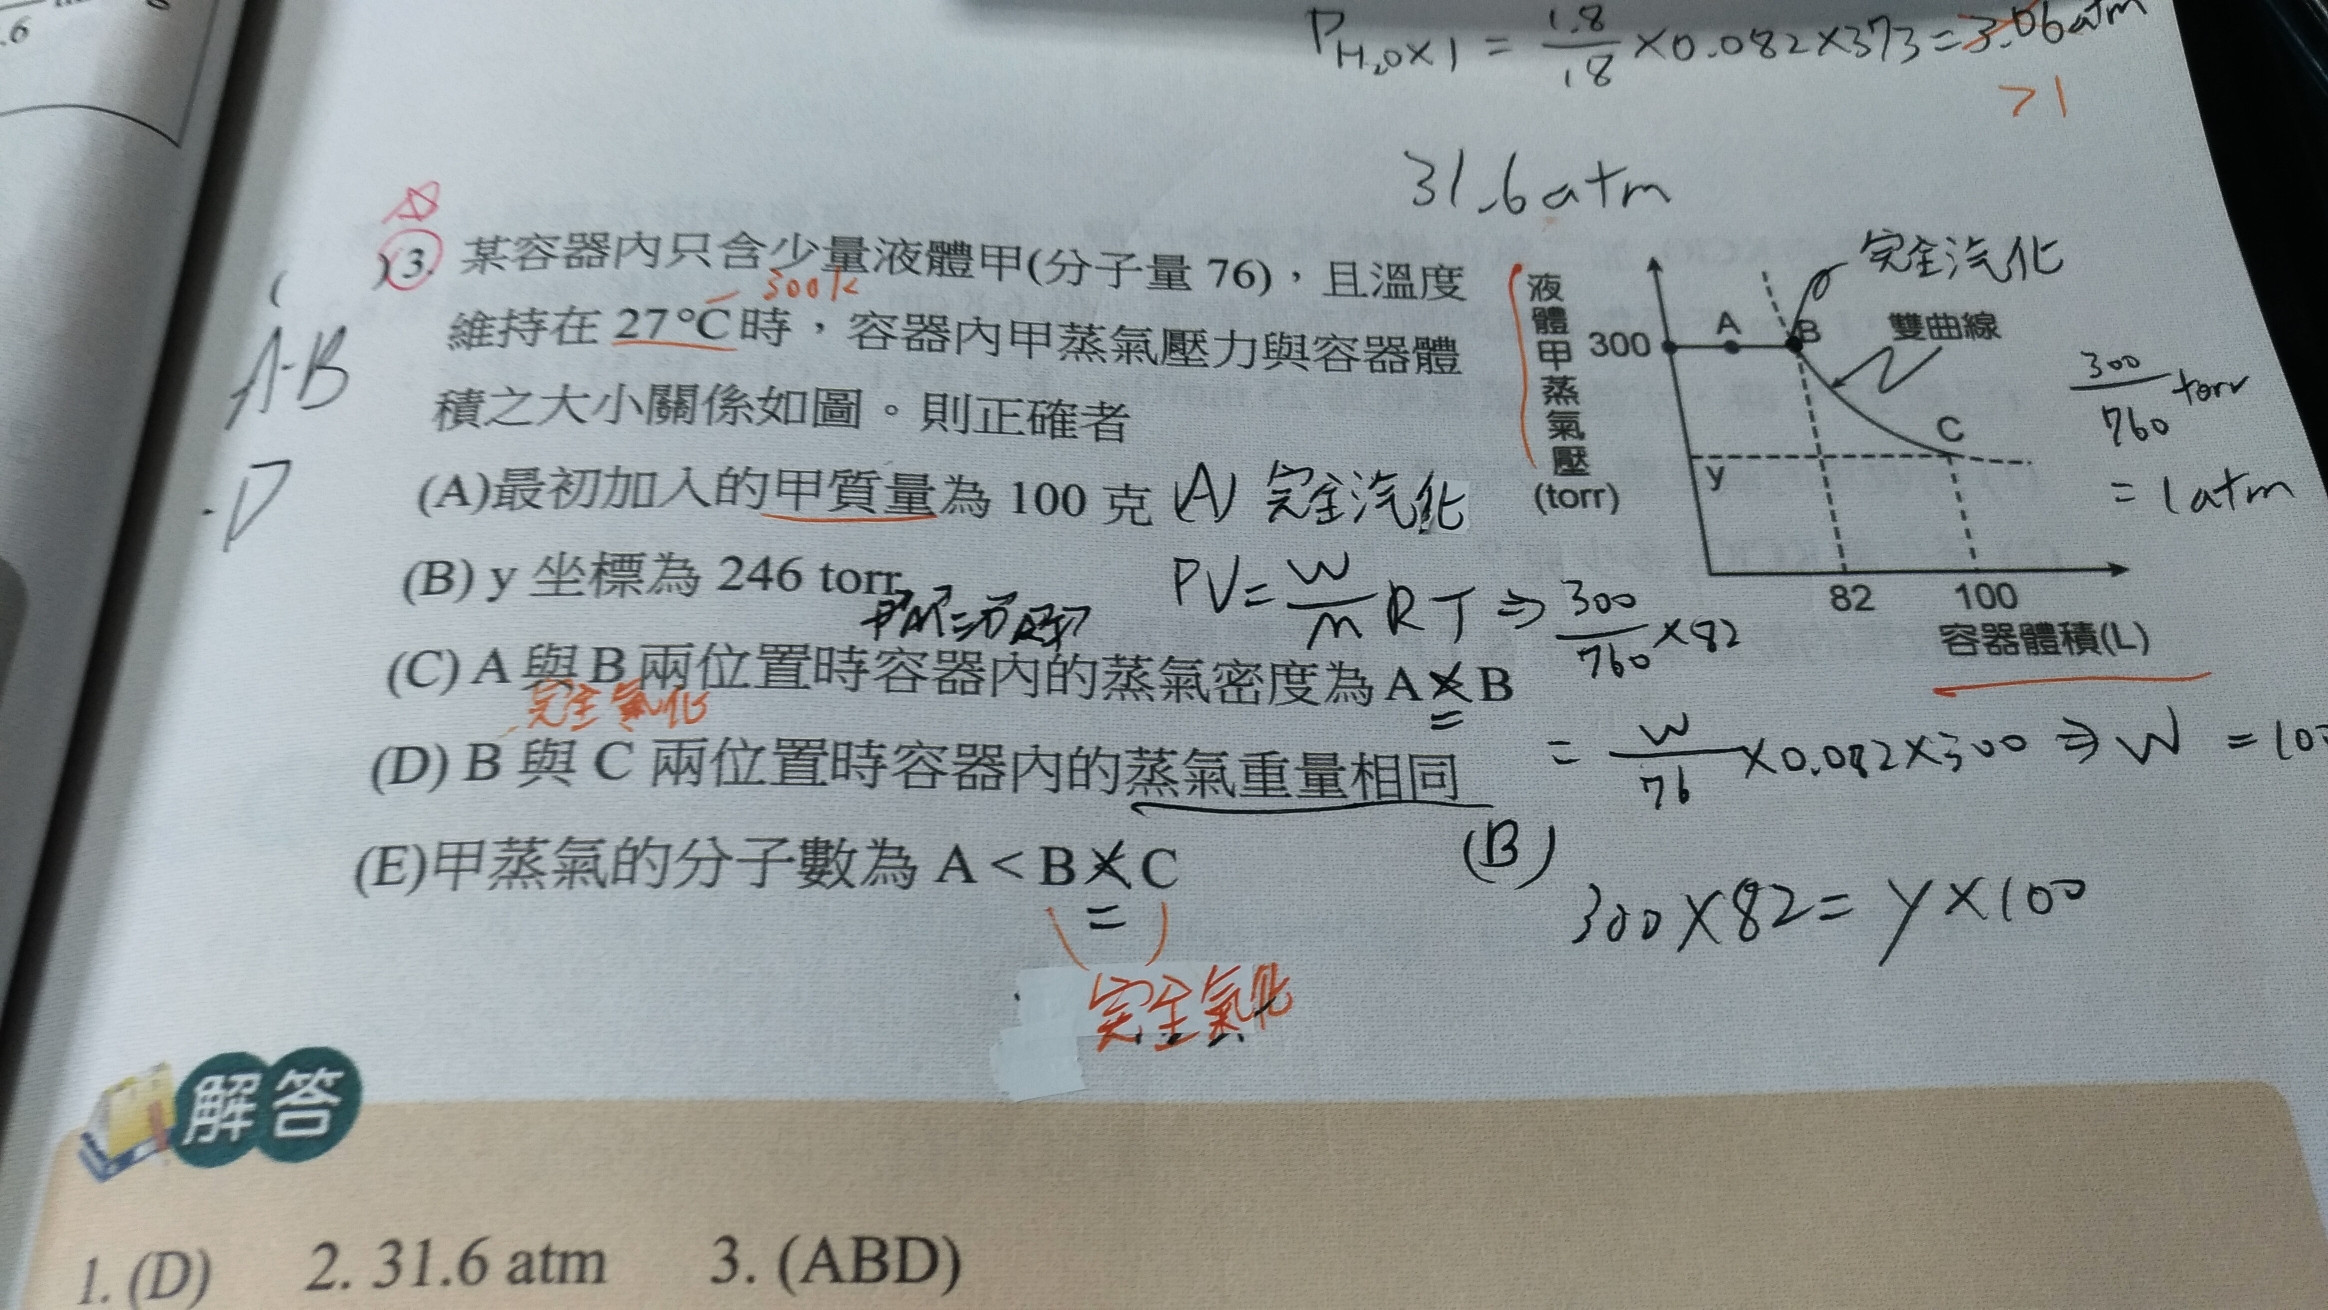 .6
P H₂O × 1 = 1.8/18 × 0.082 × 373 = 3.06 atm
>1
31.6 atm
( )3. 某容器內只含少量液體甲(分子量 76)，且溫度
300K
維持在 27°C時，容器內甲蒸氣壓力與容器體
積之大小關係如圖。則正確者
A.B
.D
(A)最初加入的甲質量為 100 克
(B) y 坐標為 246 torr
(C) A 與 B 兩位置時容器內的蒸氣密度為 A < B
=
完全氣化
(D) B 與 C 兩位置時容器內的蒸氣重量相同
(E)甲蒸氣的分子數為 A < B < C
=
完全氣化
液體甲蒸氣壓
(torr)
300
A
B
完全汽化
雙曲線
C
y
82
100
容器體積(L)
300/760 torr
= 1 atm
(A) 完全汽化
PV = W/M RT ⇒ 300/760 × 82
= W/76 × 0.082 × 300 ⇒ W = 10
(B)
300 × 82 = y × 100
解答
1. (D) 2. 31.6 atm 3. (ABD)